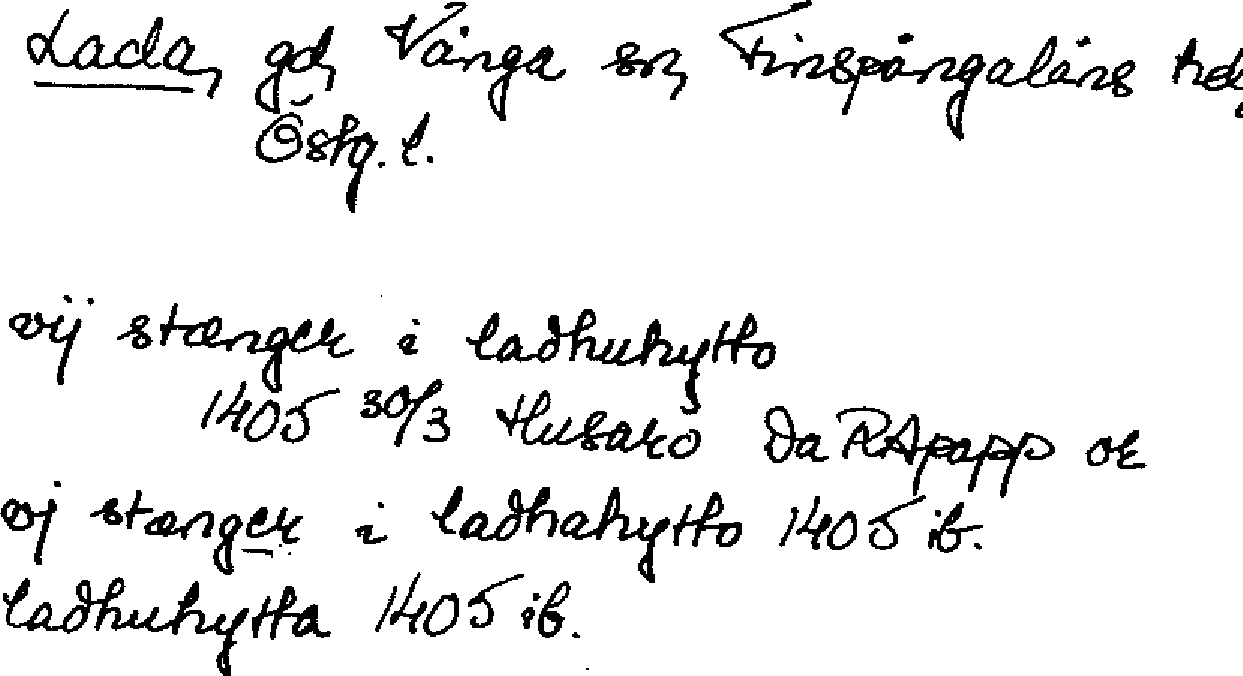 Lada, gd, Vånga sn, Finspångaläns hd,
Östg. l.
vij stænger i ladhuhytto
1405 30/3 Husarö Da RApapp or
vj stænger i ladhahytto 1405 ib.
ladhuhytta 1405 ib.